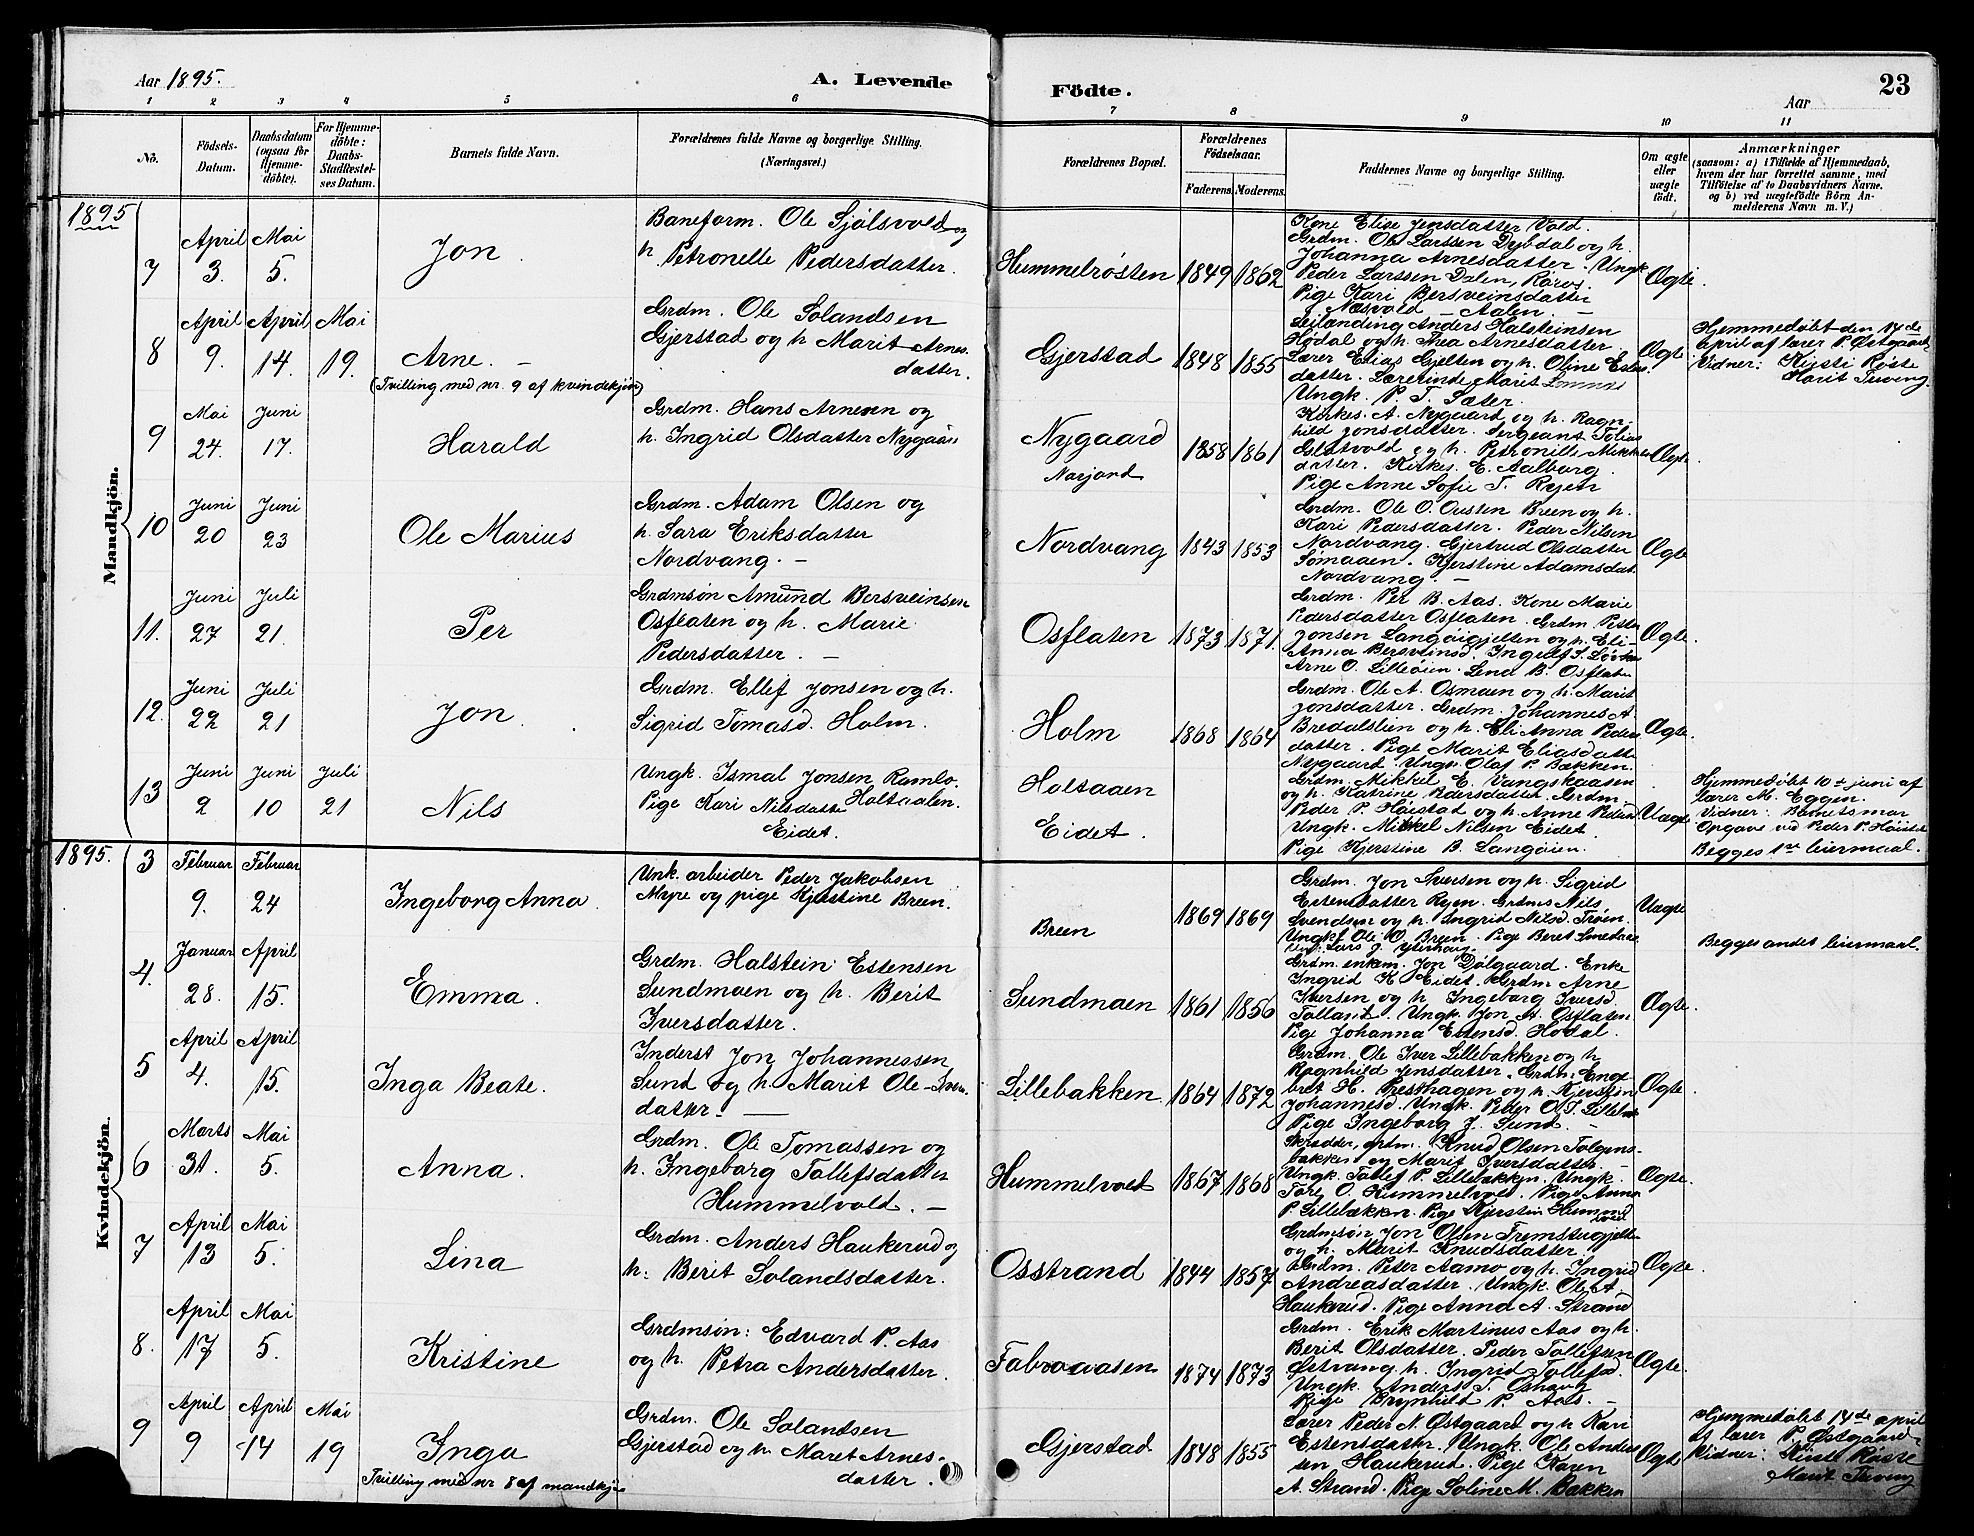 Aar 1895.
A. Levende
Födte.
Aar
23
1 2 3 4 5 6 7 8 9 10 11
No.
Födsels-
Datum.
Daabsdatum
(ogsaa for
Hjemme-
döbte).
For Hjemme-
döbte:
Daabs-
Stadfæstel-
ses Datum.
Barnets fulde Navn.
Forældrenes fulde Navne og borgerlige Stilling.
(Næringsvei.)
Forældrenes Bopæl.
Forældrenes
Födselsaar.
Faderens. Moderens.
Faddernes Navne og borgerlige Stilling.
Om ægte
eller
uægte
födt.
Anmærkninger
(saasom: a) i Tilfælde af Hjemmedaab,
hvem der har forrettet samme, med
Tilföielse af to Daabsvidners Navne.
og b) ved uægtefödte Börn An-
melderens Navn m. V.)
1895
Mandkjön.
7
April
3.
Mai
5.
Jon.
Baneform. Ole Sjølsvold og
h. Petronelle Pedersdatter.
Hummelrösten
1849
1862
Kone Elise Jensdatter Vold.
Grdm. Ole Larssen Dybdal og h.
Johanna Arnesdatter. Ungk
Peder Larssen Dalen, Røros.
Pige Kari Bersveinsdatter
Næsvold – Aalen. –
Ægte.
8
April
9.
April
14.
Mai
19.
Arne. –
(Tvilling med nr. 9 af kvindekjön)
Grdm. Ole Solandsen
Gjerstad og h. Marit Arnes-
datter.
Gjerstad
1848
1855
Leilænding Anders Halsteinsen
Hodal og h. Thea Arnesdatter.
Lærer Elias Gjelten og h. Oline Estens
datter. Lærerinde Marit
Ungk. P. T. Sæter.
Ægte
Hjemmedøbt den 14de
april af lærer P. Østgaard.
Vidner: Kjisti Røste
Marit Tuveng.
9
Mai
24.
Juni
17.
Harald
Grdm. Hans Arnesen og
h. Ingrid Olsdatter Nygaard
Nygaard
Narjord
1858
1861
Kirkes. A. Nygaard og h. Ragn-
hild Jonsdatter. Sergeant Tobias
og h. Petronille Mikkels
datter. Kirkes. E. Aalborg.
Pige Anne Sofie T. Ryen
Ægte
10
Juni
20
Juni
23
Ole Marius
Grdm. Adam Olsen og
h. Sara Eriksdatter
Nordvang. –
Nordvang
1843
1853
Grdm. Ole O. Ousten Breen og h.
Kari Pedersdatter. Peder Nilsen
Nordvang. Gjertrud Olsdatter
Sømaaen. Kjerstine Adamsdat.
Nordvang. –
Ægte
11.
Juni
27
Juli
21.
Per
Grdmsøn Amund Bersveinsen
Osflaten og h. Marie
Pedersdatter. –
Osflaten
1873
1871.
Grdm. Per B. Aas. Kone Marie
Pedersdatter Osflaten. Grdm. Peter
Jonsen Langøigjelten og h. Eli-
Anna Bersveinsd. Ingelef S.
Arne O. Lilleøien. Lend B. Osflaten
Ægte.
12.
Juni
22
Juli
21
Jon.
Grdm. Ellef Jonsen og h.
Sigrid Tomasd. Holm.
Holm
1868
1864
Grdm. Ole A. Osmoen og h. Marit
Jonsdatter. Grdm. Johannes A.
Bredalslien og h. Eli Anna Peders
datter. Pige Marit Eliasdatter
Nygaard. Ungk. Olaf P. Bakken.
Ægte.
13
Juni
2
Juni
10
Juli
21
Nils
Ungk. Ismal Jonsen Ramlo.
Pige Kari Nilsdatter Holtaalen.
Eidet.
Holtaaen
Eidet.
Grdm. Mikkel E. Vangskaasen
og h. Katrine Pedersdatter. Grdm.
Peder P. Høistad og h. Anne Peders
Ungk. Mikkel Nilsen Eidet
Pige Kjerstine B. Langøien.
Uægte
Hjemmedøbt 10de juni af
lærer M. Eggen.
Vidner: Barnets mor
Opgave ved Peder P. Høistad
Begges 1ste leiermaal.
1895.
Kvindekjön.
3
Februar
9.
Februar
24
Ingeborg Anna.
Unk. arbeider Peder Jakobsen
Myre og pige Kjerstine Breen.
Breen
1869
1869
Grdm. Jon Iversen og h. Sigrid
Estensdatter Ryen. Grdm. Nils
Svendsen og h. Ingrid Nilsd. Trøen.
Ungk. Ole O. Breen. Pige Beret Smedaas
Ungk. Lars J. Ytterhaug
Uægte
Begges andet leiermaal.
4.
Januar
28.
April
15.
Emma.
Grdm. Halstein Estensen
Sundmoen og h. Berit
Iversdatter.
Sundmoen
1861
1856
Grdm. enkem. Jon Dølgaard. Enke
Ingrid K. Eidet. Grdm Arne
Iversen og h. Ingeborg Iversd.
Tollan. Ungk. Jon H. Osflaten
Pige Johanna Estensd. Hodal.
Ægte.
5
April
4.
April
15.
Inga Beate.
Inderst Jon Johannessen
Sund og h. Marit Ole-Iver-
datter. –
Lillebakken
1864
1872
Grdm. Ole Iver Lillebakken og h.
Ragnhild Jensdatter. Grdm. Enge
bret H. Presthagen og h. Kjerstin
Johannesd. Ungk. Peder O. I. Lilleb
Pige Ingeborg J. Sund. –
Ægte.
6
Marts
31.
Mai
5.
Anna.
Grdm. Ole Tomassen og
h. Ingeborg Tollefsdatter
Hummelvold. –
Hummelvold
1867
1868
Skrædder, grdm. Knud Olsen Tolgens-
bakken og Marit Iversdatter. –
Ungk. Tollef P. Lillebakken. Ungk.
Tore O. Hummelvold. Pige Anna
P. Lillebakken. Pige Kjerstin Hummel
vold
Ægte.
7
April
13
Mai
5.
Lina
Grdm. Anders Haukerud og
h. Berit Solandsdatter.
Osstrand
1844
1857
Grdmsøn Jon Olsen Fremstugjelt
og h. Marit Knudsdatter.
Grdm. Peter Aamo og h. Ingrid
Andreasdatter. Ungk. Ole A.
Haukerud. Pige Anna A. Strand
Ægte.
8.
April
17
Mai
5.
Kristine
Grdmsøn: Edvard P. Aas
og h. Petra Andersdatter.
1874
1873
Grdm. Erik Martinus Aas og h.
Berit Olsdatter. Peder Tollefsen
Østvang. h. Ingrid Tollefsd.
Ungk. Anders T. Oshaug
Pige Brynhild P. Aas. –
Ægte.
9
April
9
April
14
Mai
19
Inga
Tvilling med nr 8 af mandkjøn
Grdm. Ole Solandsen
Gjerstad og h. Maret Arnes-
datter.
Gjerstad
1848
1855
Lærer Peder N. Østgaard og h. Kari
Estensdatter. Ungk. Ole Anders
sen Haukerud. Pige Karen
A. Strand. Pige Soline M. Bakken
Ægte
Hjemmedøbt 14de april
af lærer P. Østgaard.
Vidner: Kirsti Røste
Marit Tuveng